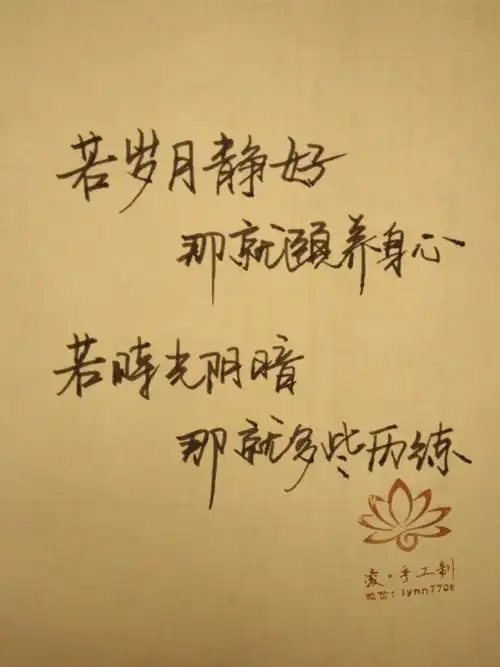 若岁月静好
那就颐养身心
若时光阴暗
那就多些历练
凌·手工制
微信:lynn7706